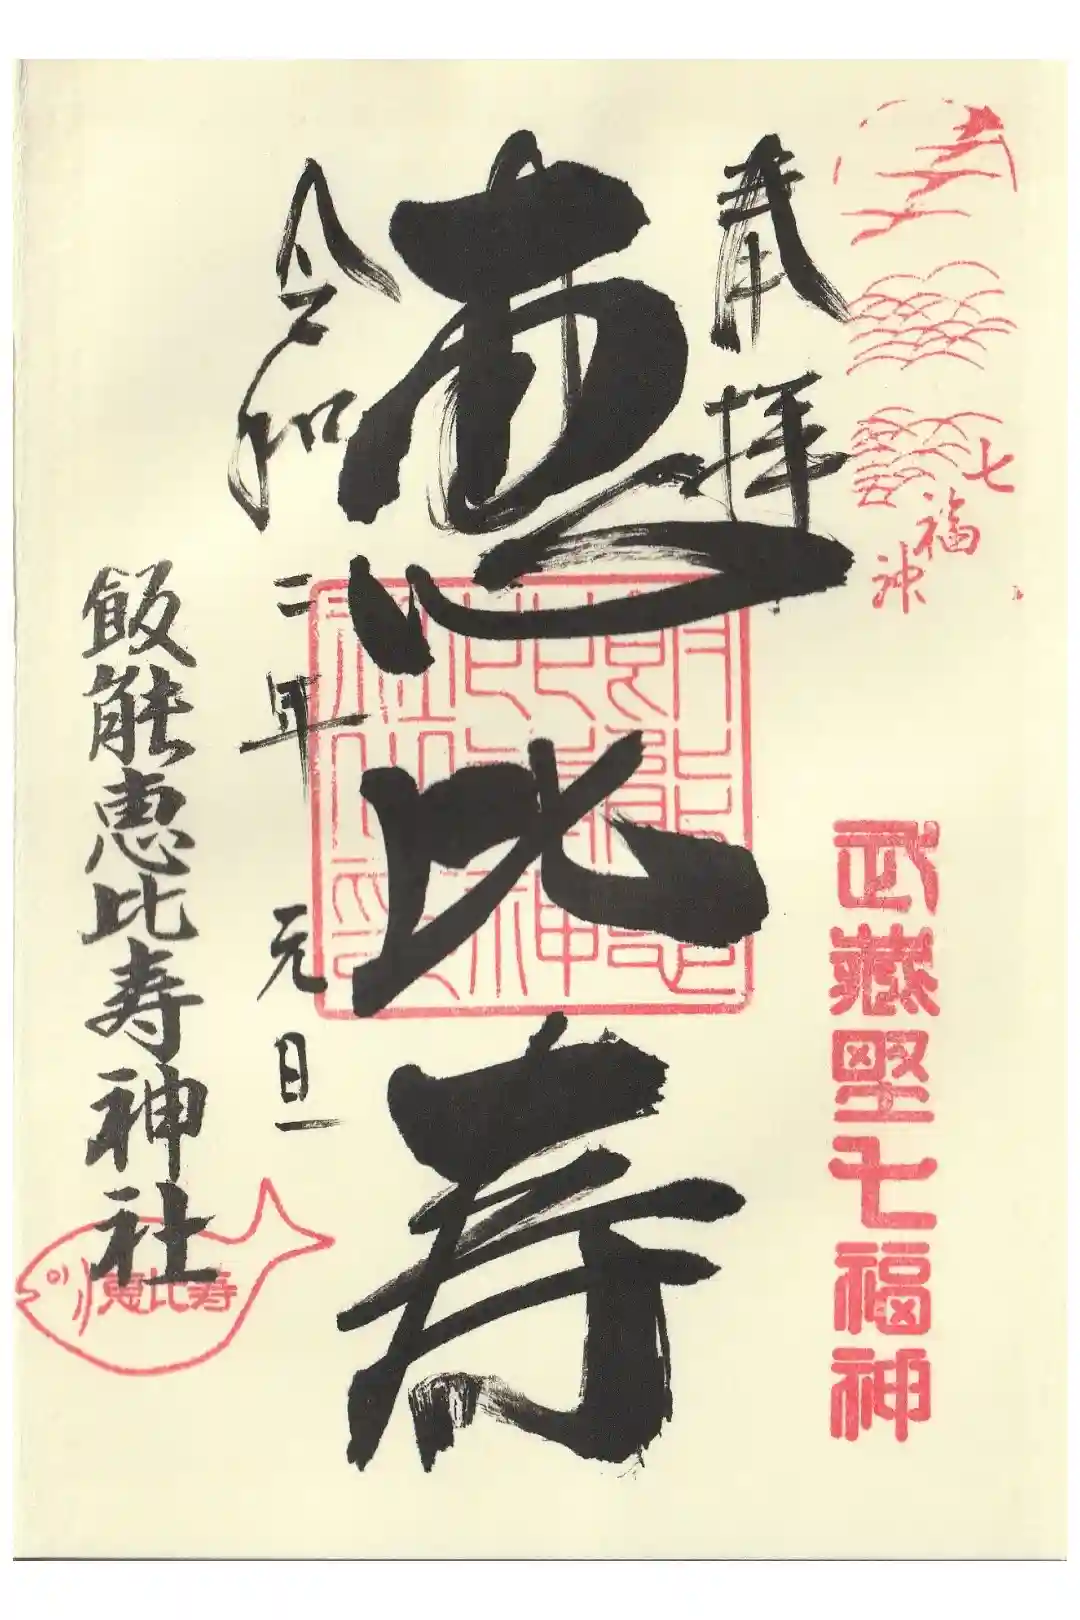 七福神
武蔵野七福神
奉拝
恵比寿
令和二年 元旦
飯能恵比寿神社
恵比寿